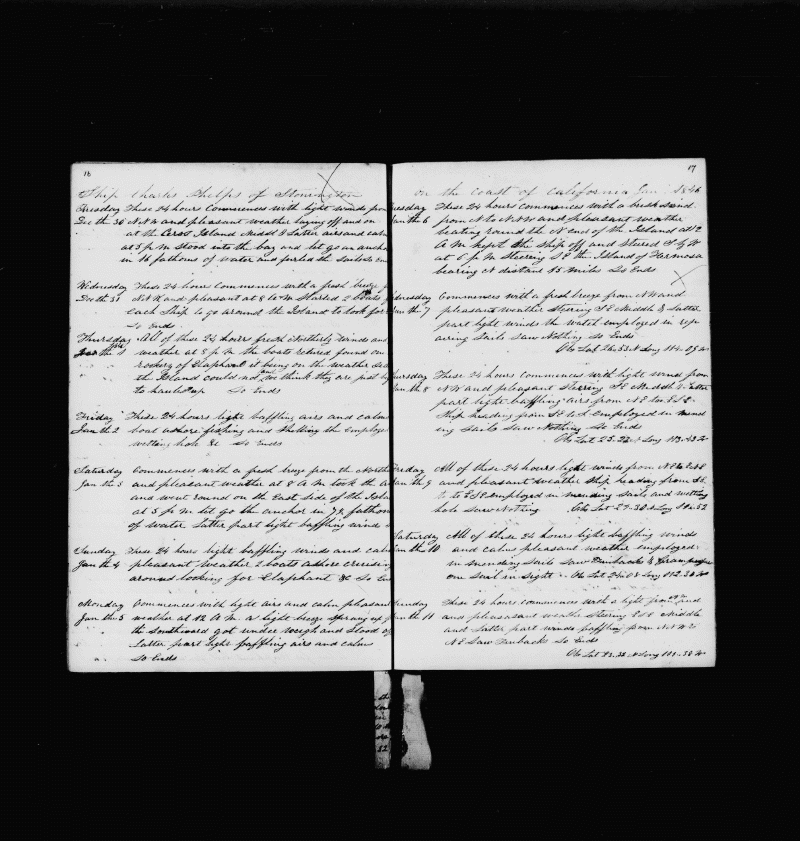 16
Ship Charles Phelps of Stonington
Tuesday These 24 hours Commences with light winds from
Dec the 30 N.N.W and pleasant weather laying off and on
at the Ceros Island Midd & Latter airs and calm
at 5 p m stood into the bay and let go an anchor
in 16 fathoms of water and furled the Sails So En
Wednesday These 24 hours Commences with a fresh breeze f
Dec the 31 N.N.W and pleasant at 8 A M Started 2 boats f
each Ship to go around the Island to look for
So Ends
Thursday All of these 24 hours fresh Northerly winds and
Jan the 1 weather at 8 p m the boats retured found one
rookery of Elaphant it being on the weather side
the Island could not we think they are just
to haule up So Ends
Friday These 24 hours light baffling airs and calms
Jan the 2 boat ashore fishing and Shelling the Employed
wetting hole &c So Ends
Saturday Commences with a fresh breeze from the North
Jan the 3 and pleasant weather at 8 A M took the a
and went round on the East Side of the Islan
at 5 p m let go the anchor in 7½ fathoms
of water Latter part light baffling wind s
Sunday These 24 hours light baffling winds and calm
Jan the 4 pleasant weather 2 boats ashore cruising
around looking for Elaphant &c So En
Monday Commences with light airs and calm pleasant
Jan the 5 weather at 12 A M a light breeze Sprang up f
the Southward got under weigh and Stood of
Latter part light baffling airs and calms
So Ends
17
on the coast of California Jan 1846
uesday These 24 hours Commences with a fresh wind
Jan the 6 from N to N.N.W and pleasant weather
beating round the N end of the Island at 12
A M kept the ship off and Stered S by W
at 6 p m Steering S E the Island of Hermosa
bearing N distant 15 miles So Ends
ednesday Commences with a fresh breeze from N W and
Jan the 7 pleasant weather Steering S E Middle & Latter
part light winds the watch employed in rep
airing Sails Saw Nothing So Ends
Obs Lat 26.53 N Long 114.09 W
hursday These 24 hours Commences with light winds from
Jan the 8 N W and pleasant Sterring S E Middle & Latter
part light baffling airs from N E to E S E
Ship heading from S E to S employed in mend
ing Sails Saw Nothing So Ends
Obs Lat 25.22 N Long 113.43 W
Friday All of these 24 hours light winds from N E to E S E
Jan the 9 and pleasant weather Ship heading from S E
to E S E employed in mending Sails and wetting
hole Saw Nothing Obs Lat 24.30 N Long 112.52
Saturday All of these 24 hours light baffling winds
Jan the 10 and calms pleasant weather employed
in mending Sails Saw Finbacks & Grampuses
one Sail in Sight Obs Lat 24.08 N Long 112.20 W
Sunday These 24 hours commences with a light wind from
Jan the 11 and pleasasant weather Steering E S E Middle
and Latter part winds baffling from N.N.W to
N E Saw Finbacks So Ends
Obs Lat 23.32 N Long 111.38 W